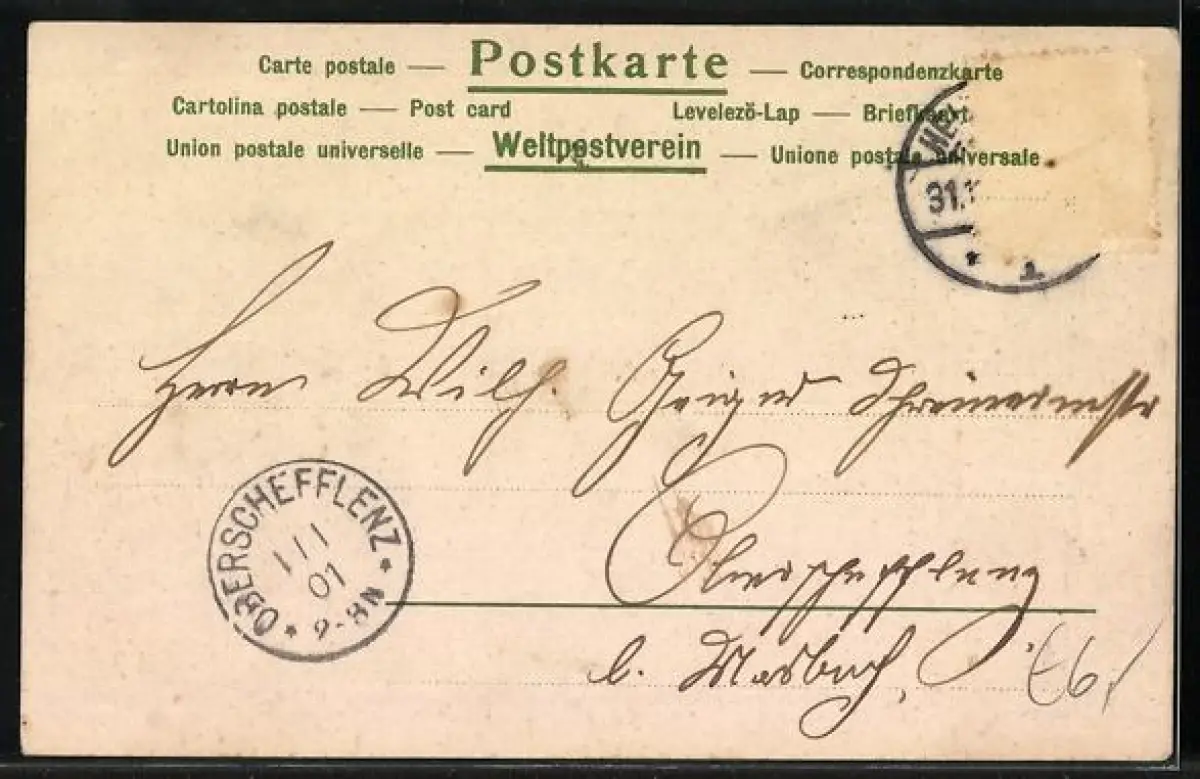 Carte postale — Postkarte — Correspondenzkarte
Cartolina postale — Post card Levelező-Lap — Briefkaart
Union postale universelle — Weltpostverein — Unione postale universale.
31.1
1
Herrn Wilh. Geiger Schreinermstr
OBERSCHEFFLENZ
1 1 1
01
8-9N
Oberschefflenz
b. Mosbach.